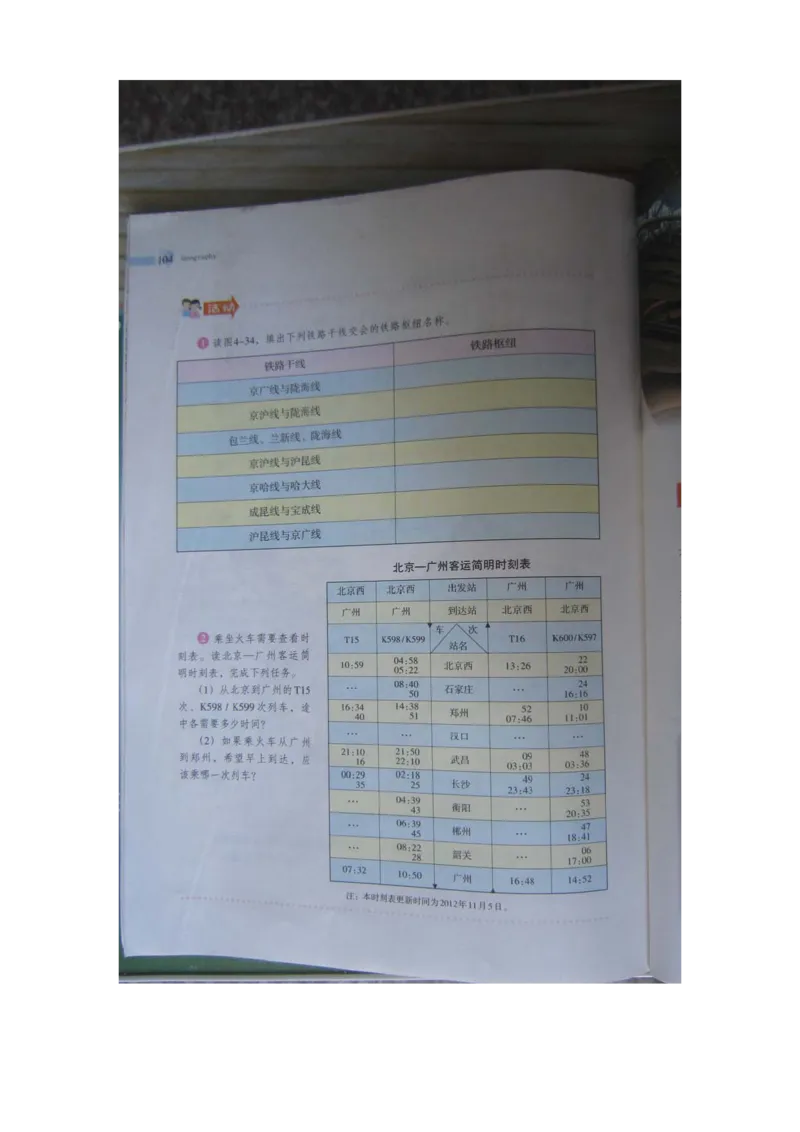 104 Geography
活动
1 读图4-34，填出下列铁路干线交会的铁路枢纽名称。
铁路干线 铁路枢纽
京广线与陇海线
京沪线与陇海线
包兰线、兰新线、陇海线
京沪线与沪昆线
京哈线与哈大线
成昆线与宝成线
沪昆线与京广线
2 乘坐火车需要查看时
刻表。读北京—广州客运简
明时刻表，完成下列任务。
（1）从北京到广州的T15
次、K598/K599次列车，途
中各需要多少时间？
（2）如果乘火车从广州
到郑州，希望早上到达，应
该乘哪一次列车？
北京—广州客运简明时刻表
北京西 北京西 出发站 广州 广州
广州 广州 到达站 北京西 北京西
T15 K598/K599 车 次 站名 T16 K600/K597
10:59 04:58 北京西 13:26 22
05:22 20:00
… 08:40 石家庄 … 24
50 16:16
16:34 14:38 郑州 52 10
40 51 07:46 11:01
… … 汉口 … …
21:10 21:50 武昌 09 48
16 22:10 03:03 03:36
00:29 02:18 长沙 49 24
35 25 23:43 23:18
… 04:39 衡阳 … 53
43 20:35
… 06:39 郴州 … 47
45 18:41
… 08:22 韶关 … 06
28 17:00
07:32 10:50 广州 16:48 14:52
注：本时刻表更新时间为2012年11月5日。